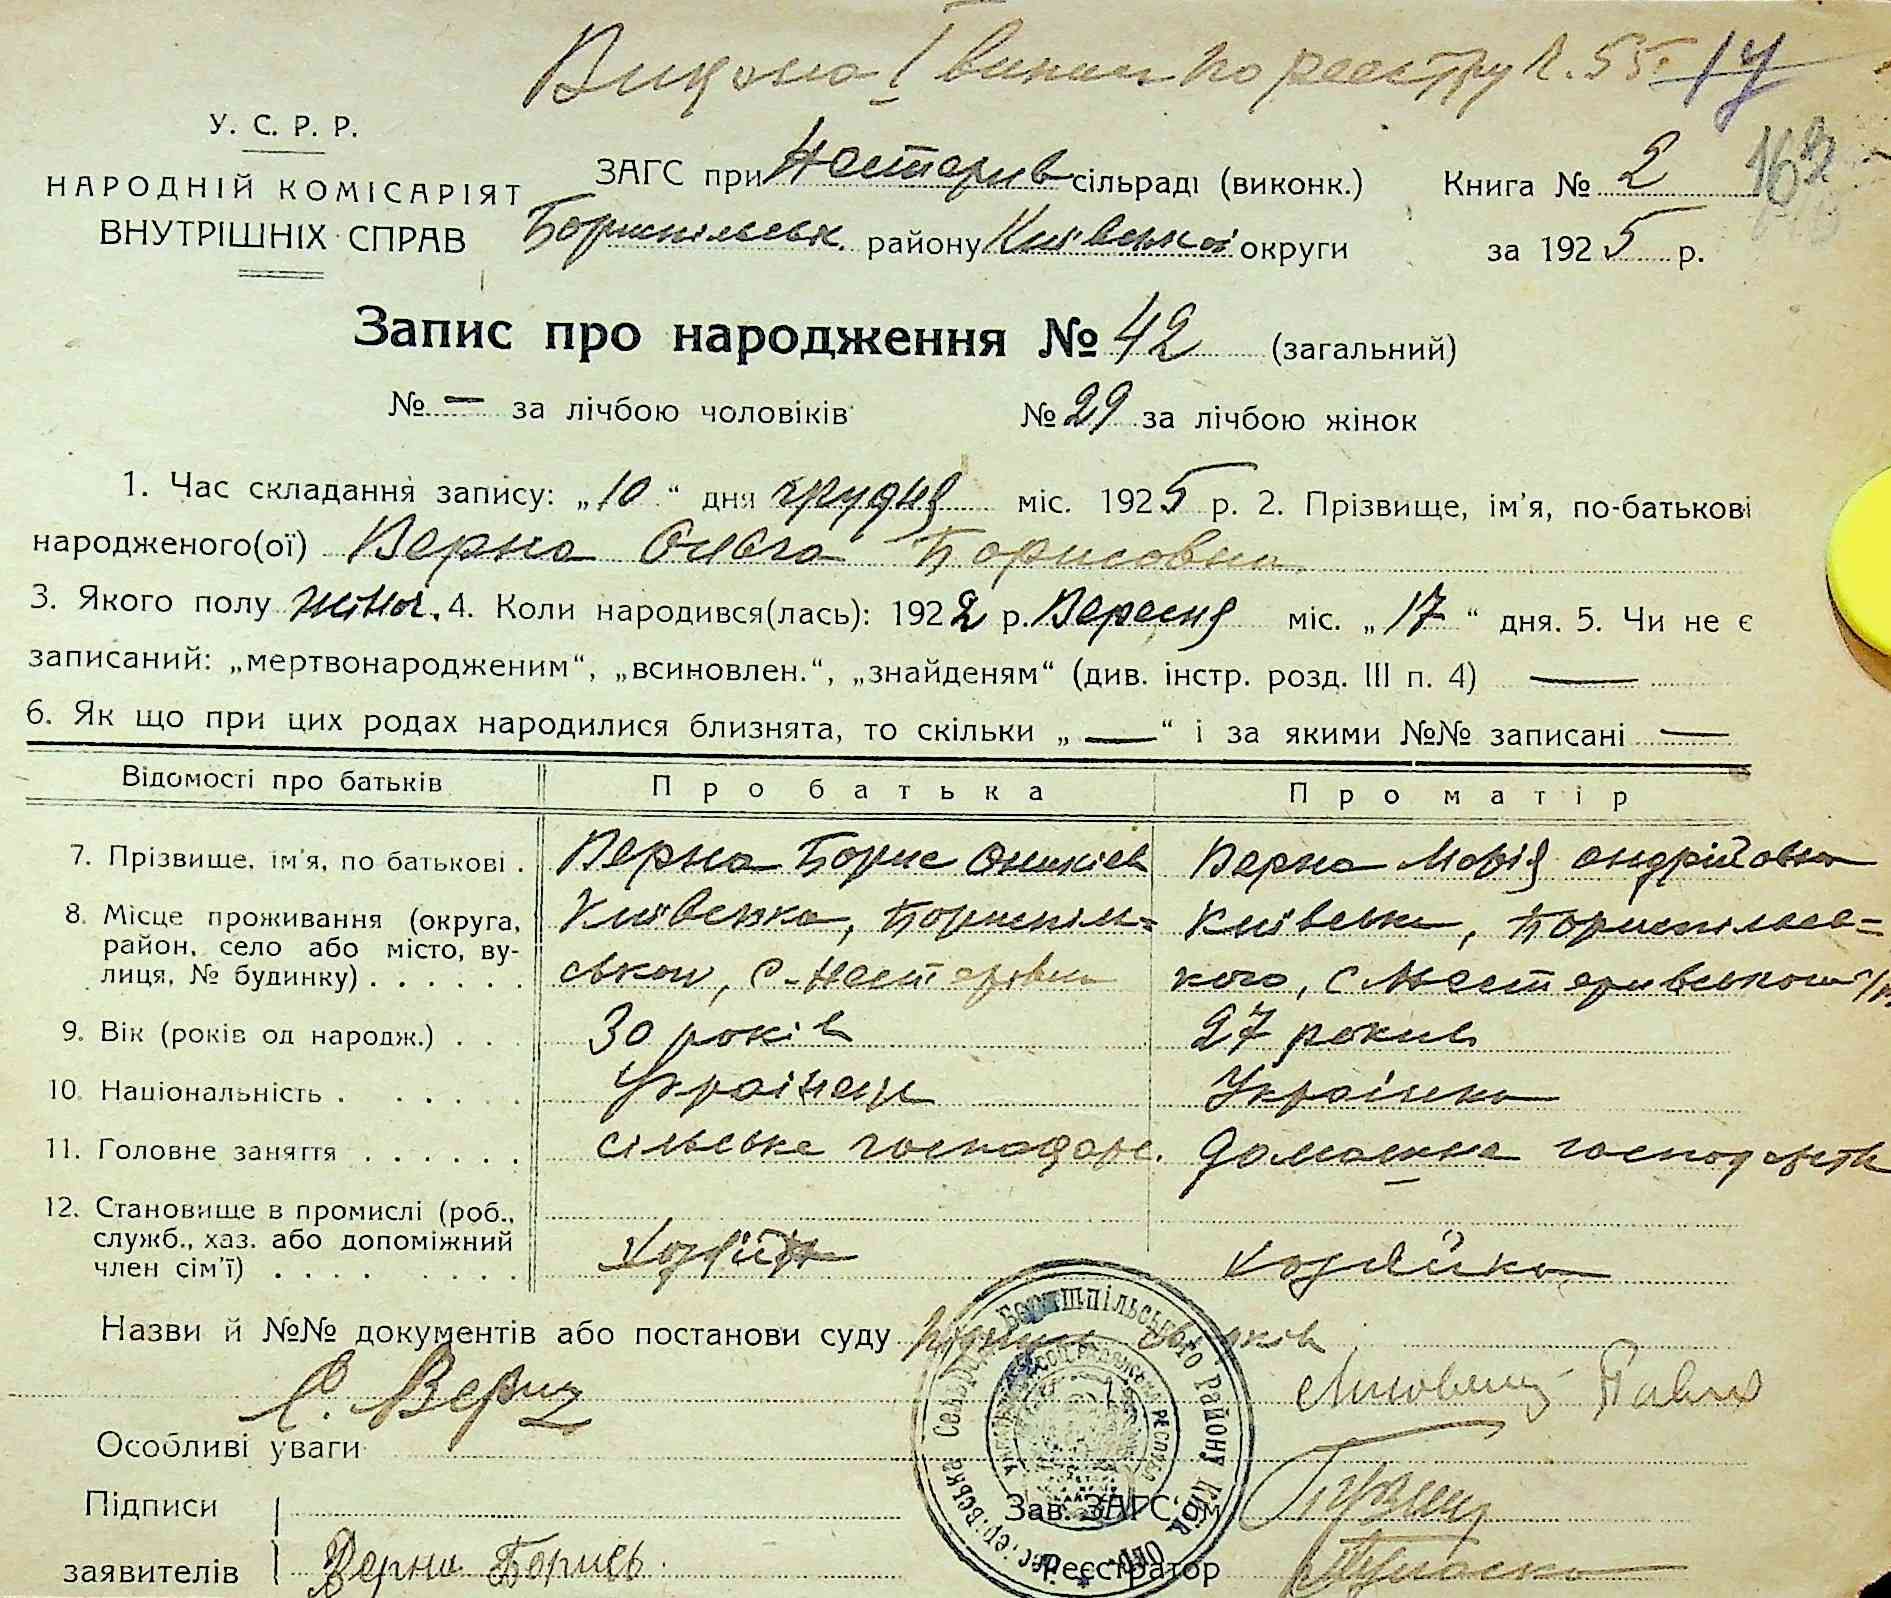 Видана І виписка по реєстру 2. 55. 14
У. С. Р. Р.
НАРОДНІЙ КОМІСАРІЯТ
ВНУТРІШНІХ СПРАВ
ЗАГС при Нестерів сільраді (виконк.) Книга № 2
Бориспільськ. району Київської округи за 1925 р.
Запис про народження № 42 (загальний)
№ — за лічбою чоловіків № 29 за лічбою жінок
1. Час складання запису: „10“ дня грудня міс. 1925 р. 2. Прізвище, ім'я, по-батькові
народженого(ої) Верна Ольга Борисовна
3. Якого полу жіноч. 4. Коли народився(лась): 1922 р. Вересня міс. „17“ дня. 5. Чи не є
записаний: „мертвонародженим“, „всиновлен.“, „знайденям“ (див. інстр. розд. III п. 4) —
6. Як що при цих родах народилися близнята, то скільки „—“ і за якими №№ записані —
Відомості про батьків Про батька Про матір
7. Прізвище, ім'я, по батькові . Верна Борис Оникієв Верна Марія Андрійовна
8. Місце проживання (округа, район, село або місто, вулиця, № будинку) . . . . . .
Київська, Бориспіль= Київська, Бориспільсь=
ськой, с. Нестерівка кого, с Нестеривськой с/р.
9. Вік (років од народж.) . . . 30 років 27 рокив
10. Національність . . . . . . Українець Українка
11. Головне заняття . . . . . . сільське господарс. домашнє господарств
12. Становище в промислі (роб., служб., хаз. або допоміжний член сім'ї) . . . . Хозяїн хозяйка
Назви й №№ документів або постанови суду
Б. Верна Павло
Особливі уваги
Підписи
заявителів Верна Борись.
Зав. ЗАГС'ом
Реєстратор
Бориспільського Району Київ. Окр.